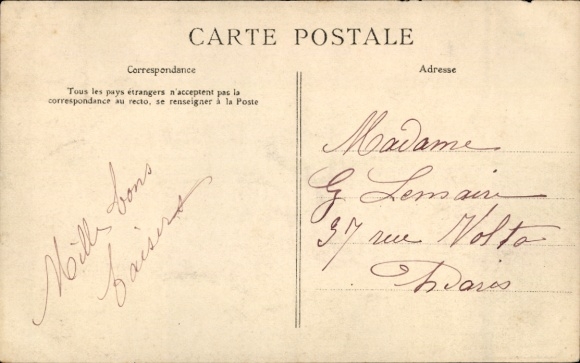 CARTE POSTALE
Correspondance
Tous les pays étrangers n'acceptent pas la
correspondance au recto, se renseigner à la Poste
Mille bons
baisers
Adresse
Madame
G Lemaire
37 rue Volta
Paris